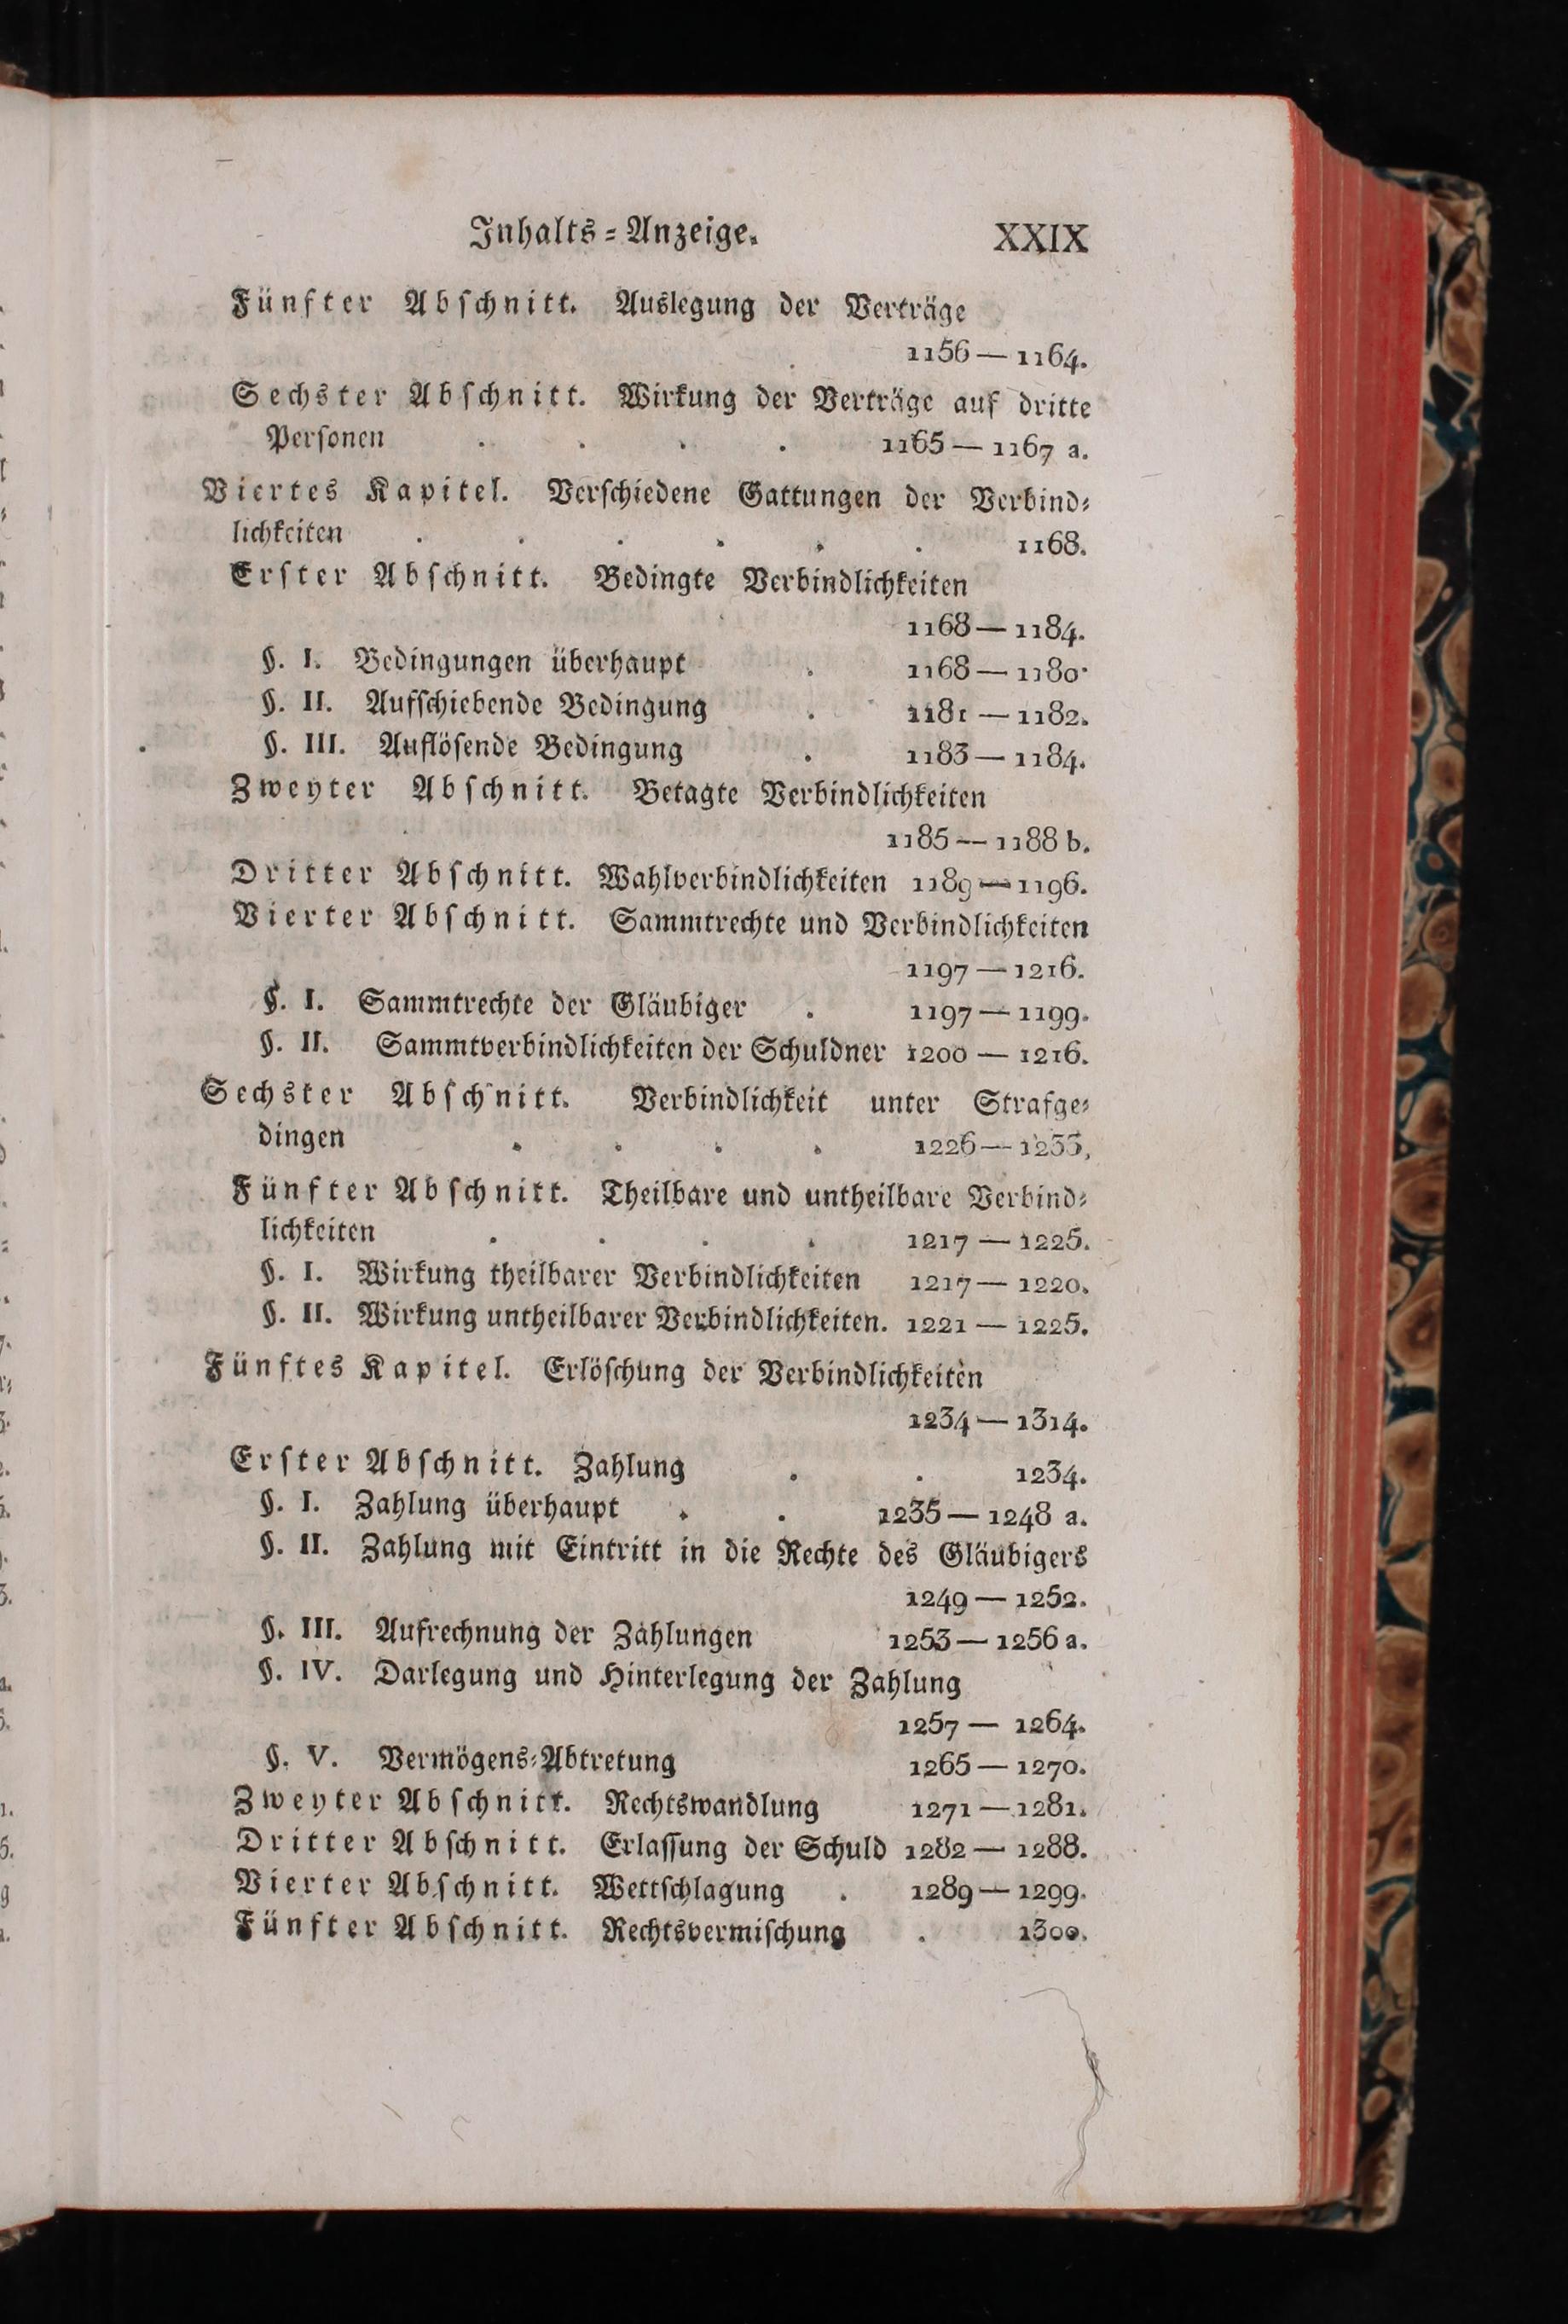 Inhalts=Anzeige. XXIX
Fünfter Abſchnitt. Auslegung der Verträge
1156 — 1164.
Sechster Abſchnitt. Wirkung der Verträge auf dritte
Perſonen . . . . 1165 — 1167 a.
Viertes Kapitel. Verſchiedene Gattungen der Verbind=
lichkeiten . . . . . . 1168.
Erſter Abſchnitt. Bedingte Verbindlichkeiten
1168 — 1184.
§. I. Bedingungen überhaupt . 1168 — 1180.
§. II. Aufſchiebende Bedingung . 1181 — 1182.
§. III. Auflöſende Bedingung . 1183 — 1184.
Zweyter Abſchnitt. Betagte Verbindlichkeiten
1185 — 1188 b.
Dritter Abſchnitt. Wahlverbindlichkeiten 1189 — 1196.
Vierter Abſchnitt. Sammtrechte und Verbindlichkeiten
1197 — 1216.
§. I. Sammtrechte der Gläubiger . 1197 — 1199.
§. II. Sammtverbindlichkeiten der Schuldner 1200 — 1216.
Sechster Abſchnitt. Verbindlichkeit unter Strafge=
dingen . . . . 1226 — 1233.
Fünfter Abſchnitt. Theilbare und untheilbare Verbind=
lichkeiten . . . . 1217 — 1225.
§. I. Wirkung theilbarer Verbindlichkeiten 1217 — 1220.
§. II. Wirkung untheilbarer Verbindlichkeiten. 1221 — 1225.
Fünftes Kapitel. Erlöſchung der Verbindlichkeiten
1234 — 1314.
Erſter Abſchnitt. Zahlung . . 1234.
§. I. Zahlung überhaupt . . 1235 — 1248 a.
§. II. Zahlung mit Eintritt in die Rechte des Gläubigers
1249 — 1252.
§. III. Aufrechnung der Zahlungen 1253 — 1256 a.
§. IV. Darlegung und Hinterlegung der Zahlung
1257 — 1264.
§. V. Vermögens=Abtretung 1265 — 1270.
Zweyter Abſchnitt. Rechtswandlung 1271 — 1281.
Dritter Abſchnitt. Erlaſſung der Schuld 1282 — 1288.
Vierter Abſchnitt. Wettſchlagung . 1289 — 1299.
Fünfter Abſchnitt. Rechtsvermiſchung . 1300.